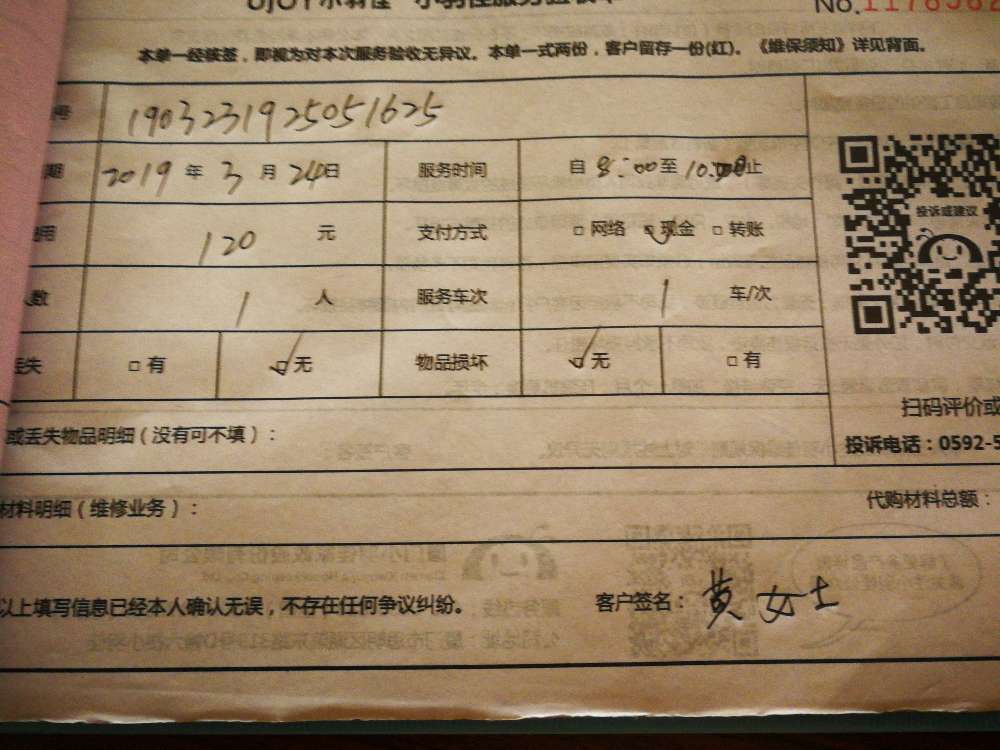 No.
本单一经核签，即视为对本次服务验收无异议。本单一式两份，客户留存一份(红)。《维保须知》详见背面。
号 1903231925051625
期 2019 年 3 月 24日 服务时间 自 8:00 至 10:00 止
用 120 元 支付方式 □ 网络 ☑ 现金 □ 转账
人数 1 人 服务车次 1 车/次
丢失 □ 有 ☑ 无 物品损坏 ☑ 无 □ 有
投诉或建议
扫码评价或
或丢失物品明细（没有可不填）：
投诉电话：0592-5
材料明细（维修业务）：
代购材料总额：
以上填写信息已经本人确认无误，不存在任何争议纠纷。 客户签名：黄女士